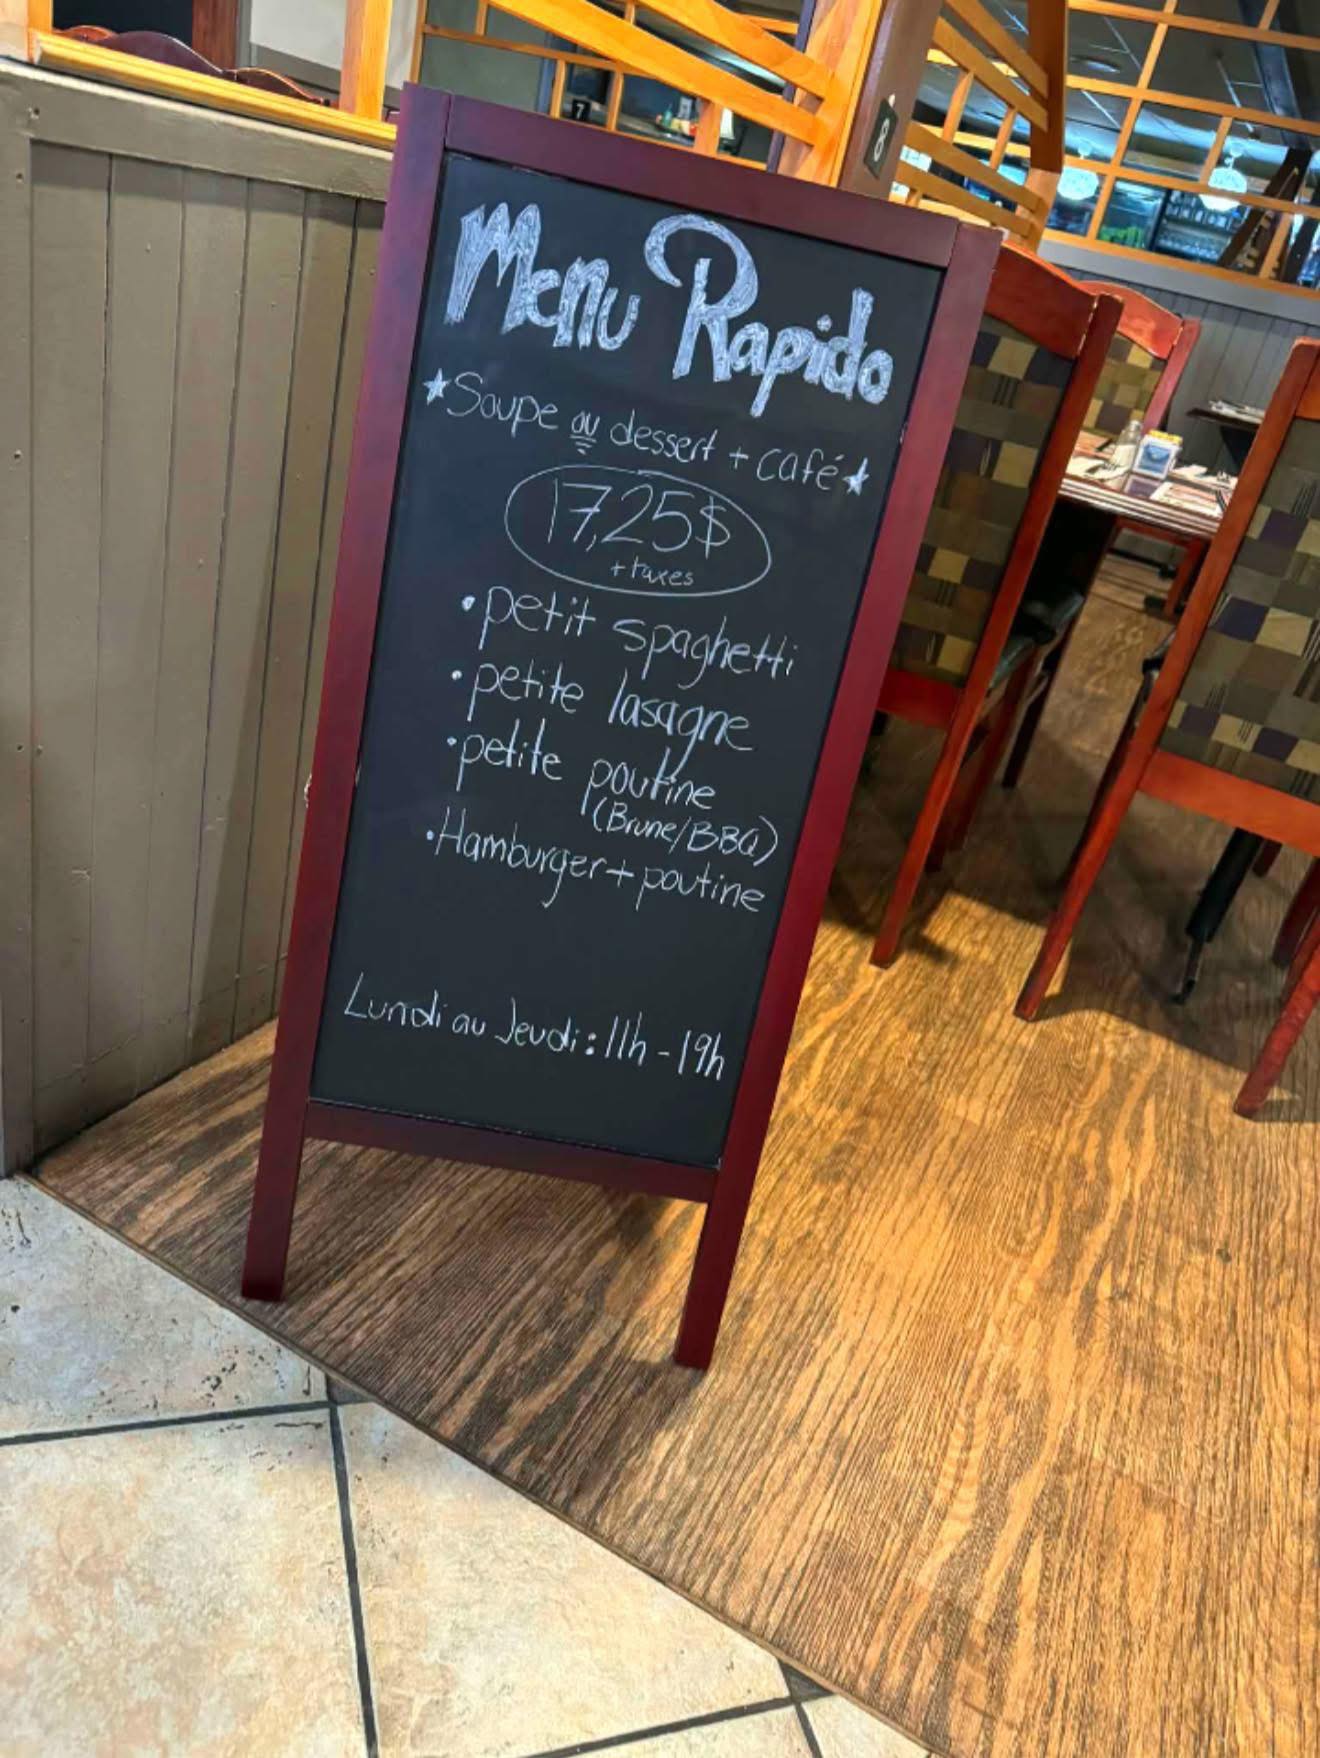 Menu Rapido
★Soupe ou dessert + café★
17,25$
+ taxes
• petit spaghetti
• petite lasagne
• petite poutine
(Brune/BBQ)
• Hamburger + poutine
Lundi au Jeudi : 11h - 19h
8
7